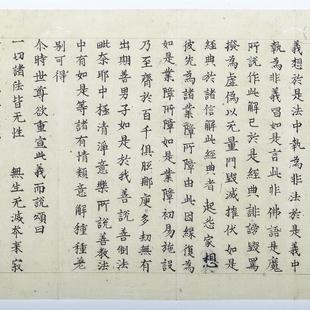 義想於是法中執為非法於是義中
執為非義唱如是言此非佛語是魔
所說作此解已於是經典誹謗毀罵
撥為虛偽以无量門毀滅摧伏如是
經典於諸信解此經典者起惌家想
彼先為諸業障所障由此因緣復為
如是業障所障如是業障初易施設
乃至齊於百千俱胝那庾多劫無有
出期善男子如是於我善說善制法
毗奈耶中極清淨意樂所說善教法
中有如是等諸有情類意解種種差
別可得
尒時世尊欲重宣此義而說頌曰
一切諸法皆无性 無生无滅本来寂